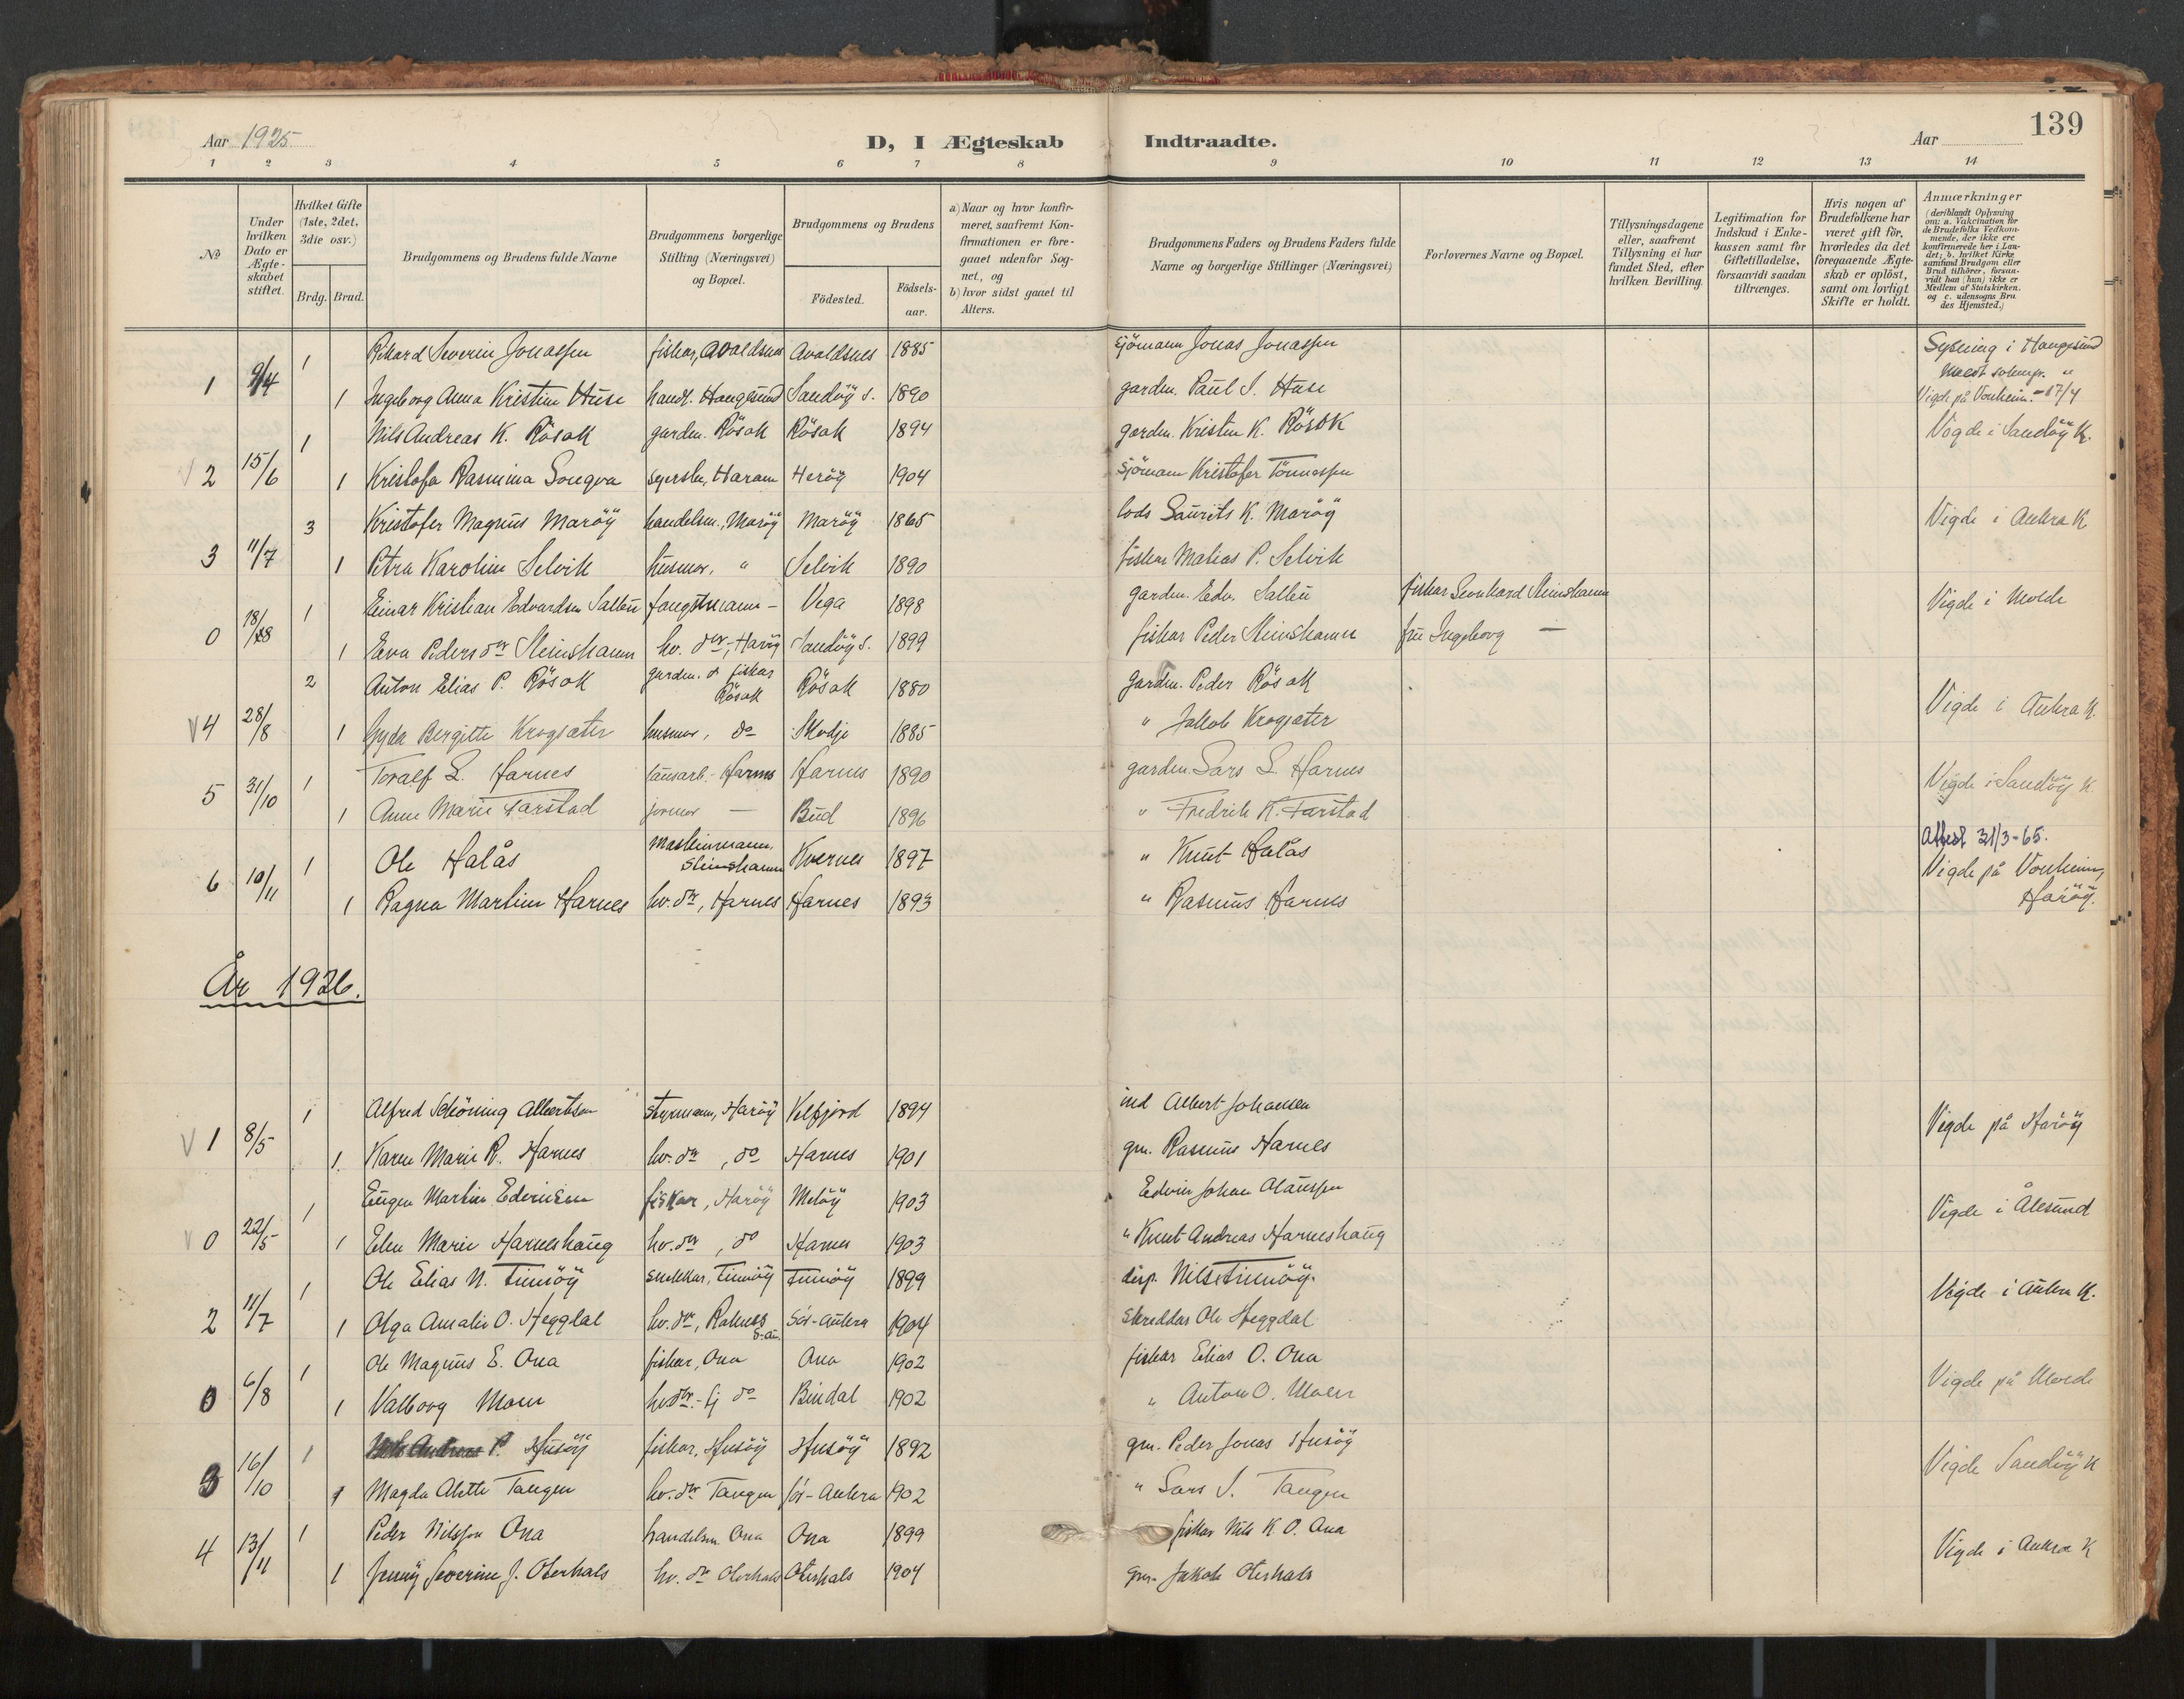 139
Aar 1925 D, I Ægteskab Indtraadte. Aar
1 2 3 4 5 6 7 8 9 10 11 12 13 14
No
Under hvilken Dato er Ægteskabet stiftet.
Hvilket Gifte (1ste, 2det, 3die osv.)
Brdg. Brud.
Brudgommens og Brudens fulde Navne
Brudgommens borgerlige Stilling (Næringsvei) og Bopæl.
Brudgommens og Brudens
Födested. Födsels-aar.
a) Naar og hvor konfirmeret, saafremt Konfirmationen er foregaaet udenfor Sognet, og
b) hvor sidst gaaet til Alters.
Brudgommens Faders og Brudens Faders fulde Navne og borgerlige Stillinger (Næringsvei)
Forlovernes Navne og Bopæl.
Tillysningsdagene eller, saafremt Tillysning ei har fundet Sted, efter hvilken Bevilling.
Legitimation for Indskud i Enkekassen samt for Giftetilladelse, forsaavidt saadan tiltrænges.
Hvis nogen af Brudefolkene har været gift før, hvorledes da det foregaaende Ægteskab er oplöst, samt om lovligt Skifte er holdt.
Anmærkninger (deriblandt Oplysning om: a. Vakcination for de Brudefolks Vedkommende, der ikke ere konfirmerede her i Landet; b. hvilket Kirkesamfund Brudgom eller Brud tilhörer, forsaavidt han (hun) ikke er Medlem af Statskirken. og c. udensogns Brudes Hjemsted.)
1 Rikard Severin Jonassen fiskar, Avaldsnes Avaldsnes 1885 sjömann Jonas Jonassen Lysning i Haugesund
1 9/4 1 Ingeborg Anna Kristine Huse handl. Haugesund Sandöy s. 1890 garden. Paul I. Huse Vigde på Vonheim - 17/4
1 Nils Andreas K. Rösok garden. Rösok Rösok 1894 garden. Kristen K. Rösok Vigde i Sandöy K.
V 2 15/6 1 Kristofa Rasmina Longva Haram Heröy 1904 sjömann Kristofer Tönnessen
3 Kristofer Magnus Maröy handelsm., Maröy Maröy 1865 lods Laurits K. Maröy Vigde i Aukra K
3 11/7 1 Petra Karoline Selvik husmor, " Selvik 1890 fiskar Matias P. Selvik
1 Einar Kristian Edvardsen Salten fangstmann - Vega 1898 garden. Edv. Salten fiskar Leonhard Steinshamn Vigde i Molde
0 18/8 1 Eva Pedersdr Steinshamn hv. dr, Haröy Sandöy s. 1899 fiskar Peder Steinshamn fru Ingeborg —
2 Anton Elias P. Rösok garden. & fiskar Rösok Rösok 1880 garden. Peder Rösok Vigde i Aukra K.
V 4 28/8 1 Gyda Bergitte Krogsæter husmor, do Skodje 1885 " Jakob Krogsæter
1 Toralf L. Harnes Harnes Harnes 1890 garden. Lars L. Harnes Vigde i Sandöy K.
5 31/10 1 Anne Marie Farstad — Bud 1896 " Fredrik K. Farstad
Attest 31/3-65.
1 Ole Halås Maskinmann, Steinshamn Kvernes 1897 " Knut Halås Vigde på Vonheim, Haröy.
6 10/11 1 Ragna Martine Harnes hv. dr, Harnes Harnes 1893 " Rasmus Harnes
År 1926.
1 Alfred Schöning Albertsen styrmann, Haröy Velfjord 1894 ind Albert Johansen Vigde på Haröy
V 1 8/5 1. Karen Marie R. Harnes hv. dr, do Harnes 1901 gm. Rasmus Harnes
1 Eugen Martin Edvinsen fiskar, Haröy Melöy 1903 Edvin Johan Olaussen Vigde i Ålesund
V 0 22/5 1 Elen Marie Harneshaug hv. dr, do Harnes 1903 " Knut Andreas Harneshaug
1 Ole Elias N. Finnöy snekkar, Finnöy Finnöy 1899 disp. Nils Finnöy. Vigde i Aukra K.
2 11/7 1 Olga Amalie O. Heggdal hv. dr, S. Au. Sör-Aukra 1904 skreddar Ole Heggdal
1 Ole Magnus E. Ona fiskar, Ona Ona 1902 fiskar Elias O. Ona Vigde på Molde
0 6/8 1 Valborg Moen hv. dr. do Bindal 1902 " Anton O. Moen
1 P. Husöy fiskar, Husöy Husöy 1892 gm. Peder Jonas Husöy Vigde Sandöy K
3 16/10 1 Magda Alette Tangen hv. dr Tangen Sör-Aukra 1902 " Lars J. Tangen
1 Peder Nilsson Ona handelsm. Ona Ona 1899 fiskar Nils K. O. Ona Vigde i Aukra K
4 13/11 1 Jenny Severine J. Oterhals hv. dr Oterhals Oterhals 1904 gm. Jakob Oterhals